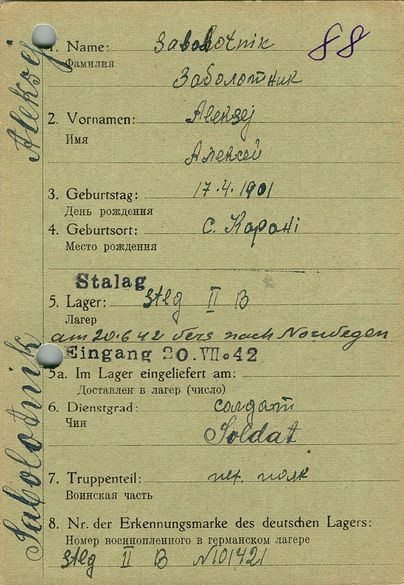 88
1. Name: Sabolotnik
Фамилия Заболотник
2. Vornamen: Aleksej
Имя
Алексей
3. Geburtstag: 17.4.1901
День рождения
4. Geburtsort: с. Карані
Место рождения
Stalag
5. Lager: Stlg II B
Лагер
am 20.6.42 vers nach Norwegen
Eingang 20.VII.42
5a. Im Lager eingeliefert am:
Доставлен в лагер (число)
6. Dienstgrad: солдат
Чин Soldat
7. Truppenteil: пех. полк
Воинская часть
8. Nr. der Erkennungsmarke des deutschen Lagers:
Номер военнопленного в германском лагере
Stlg II B N 101421
Sabolotnik Aleksej